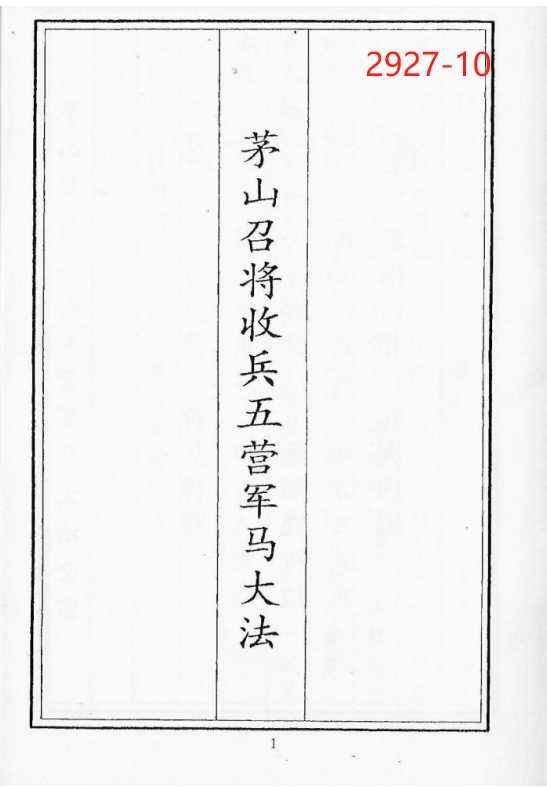 2927-10
茅山召将收兵五营军马大法
1